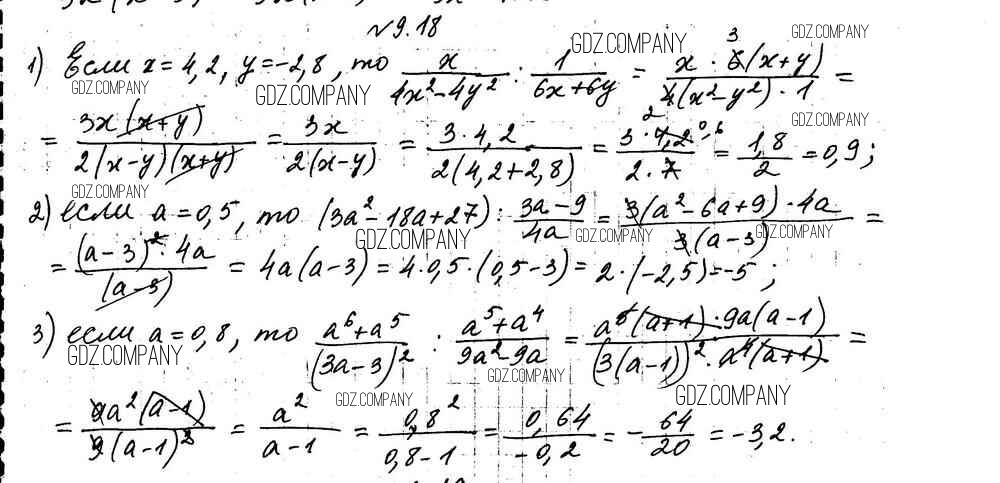 №9.18
1) Если x = 4,2, y = -2,8, то x/(4x² - 4y²) : 1/(6x + 6y) = (x · 6(x + y))/(4(x² - y²) · 1) =
= 3x(x + y)/(2(x - y)(x + y)) = 3x/(2(x - y)) = 3 · 4,2/(2(4,2 + 2,8)) = 3 · 4,2/(2 · 7) = 1,8/2 = 0,9;
2) если a = 0,5, то (3a² - 18a + 27) : (3a - 9)/4a = (3(a² - 6a + 9) · 4a)/(3(a - 3)) =
= ((a - 3)² · 4a)/(a - 3) = 4a(a - 3) = 4 · 0,5 · (0,5 - 3) = 2 · (-2,5) = -5;
3) если a = 0,8, то (a⁶ + a⁵)/(3a - 3)² : (a⁵ + a⁴)/(9a² - 9a) = (a⁵(a + 1) · 9a(a - 1))/((3(a - 1))² · a⁴(a + 1)) =
= 9a²(a - 1)/(9(a - 1)²) = a²/(a - 1) = 0,8²/(0,8 - 1) = 0,64/(-0,2) = -64/20 = -3,2.
GDZ.COMPANY
GDZ.COMPANY
GDZ.COMPANY
GDZ.COMPANY
GDZ.COMPANY
GDZ.COMPANY
GDZ.COMPANY
GDZ.COMPANY
GDZ.COMPANY
GDZ.COMPANY
GDZ.COMPANY
GDZ.COMPANY
GDZ.COMPANY